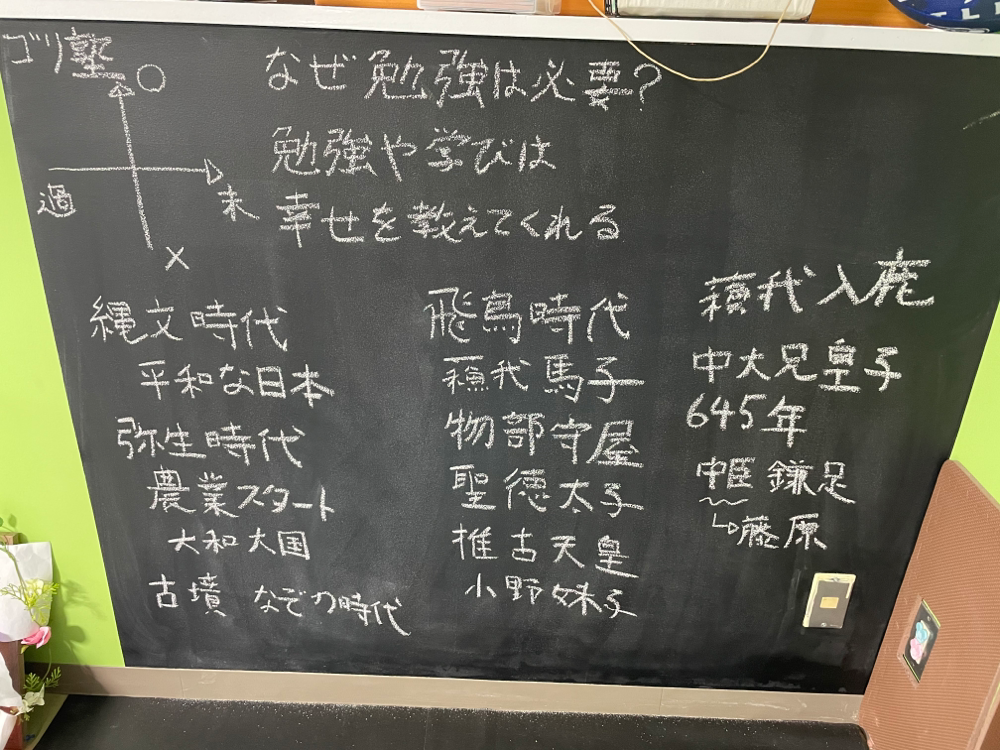 ゴリ塾
○
過
未
×
なぜ勉強は必要?
勉強や学びは
幸せを教えてくれる
縄文時代
平和な日本
弥生時代
農業スタート
大和大国
古墳 なぞの時代
飛鳥時代
蘇我馬子
物部守屋
聖徳太子
推古天皇
小野妹子
蘇我入鹿
中大兄皇子
645年
中臣鎌足
↳藤原